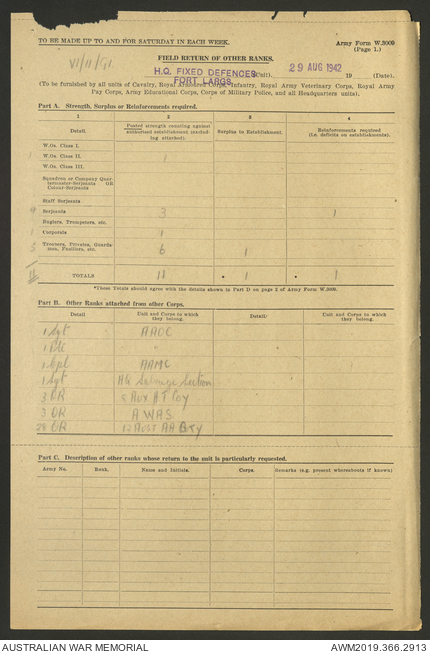 TO BE MADE UP TO AND FOR SATURDAY IN EACH WEEK.
Army Form W.3009
(Page 1.)
VI/11/91
FIELD RETURN OF OTHER RANKS.
H.Q. FIXED DEFENCES (Unit). 29 AUG 1942 19 (Date).
FORT LARGS.
(To be furnished by all units of Cavalry, Royal Armoured Corps, Infantry, Royal Army Veterinary Corps, Royal Army
Pay Corps, Army Educational Corps, Corps of Military Police, and all Headquarters units).
Part A. Strength, Surplus or Reinforcements required.
1 2 3 4
Detail. Posted strength counting against authorised establishment (excluding attached). Surplus to Establishment. Reinforcements required (i.e. deficits on establishments).
W.Os. Class I.
1 W.Os. Class II. 1
W.Os. Class III.
Squadron or Company Quartermaster-Serjeants OR Colour-Serjeants
Staff Serjeants
4 Serjeants 3 1
Buglers, Trumpeters, etc.
1 Corporals 1
5 Troopers, Privates, Guardsmen, Fusiliers, etc. 6 1
11 TOTALS 11 * 1 * 1
*These Totals should agree with the details shown in Part D on page 2 of Army Form W.3009.
Part B. Other Ranks attached from other Corps.
Detail Unit and Corps to which they belong. Detail Unit and Corps to which they belong.
1 Sgt AAOC
1 Pte "
1 Cpl AAMC
1 Sgt HQ Salvage Section
3 OR 5 Aux H T Coy
3 OR AWAS
28 OR 12 Aust AA Bty
Part C. Description of other ranks whose return to the unit is particularly requested.
Army No. Rank. Name and Initials. Corps. Remarks (e.g. present whereabouts if known)
AUSTRALIAN WAR MEMORIAL
AWM2019.366.2913